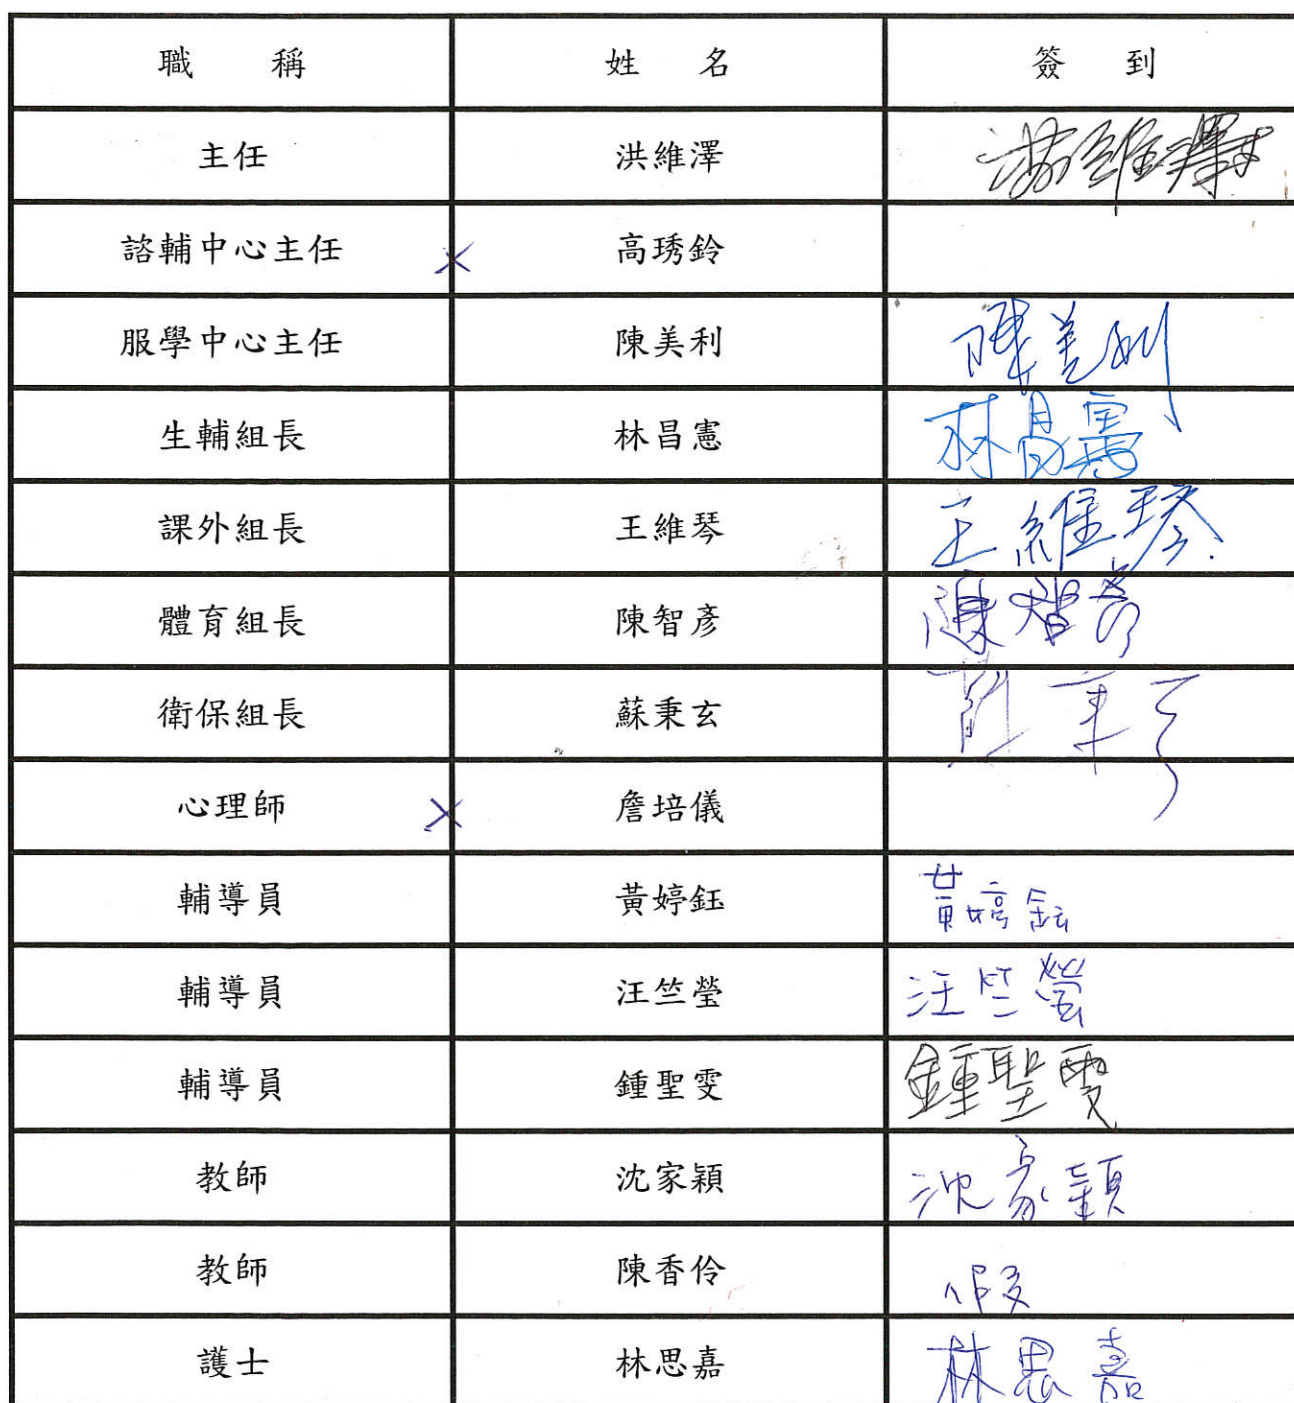 職 稱 姓 名 簽 到
主任 洪維澤 洪維澤
諮輔中心主任 × 高琇鈴
服學中心主任 陳美利 陳美利
生輔組長 林昌憲 林昌憲
課外組長 王維琴 王維琴
體育組長 陳智彥 陳智彥
衛保組長 蘇秉玄 蘇秉玄
心理師 × 詹培儀
輔導員 黃婷鈺 黃婷鈺
輔導員 汪竺瑩 汪竺瑩
輔導員 鍾聖雯 鍾聖雯
教師 沈家穎 沈家穎
教師 陳香伶 假
護士 林思嘉 林思嘉